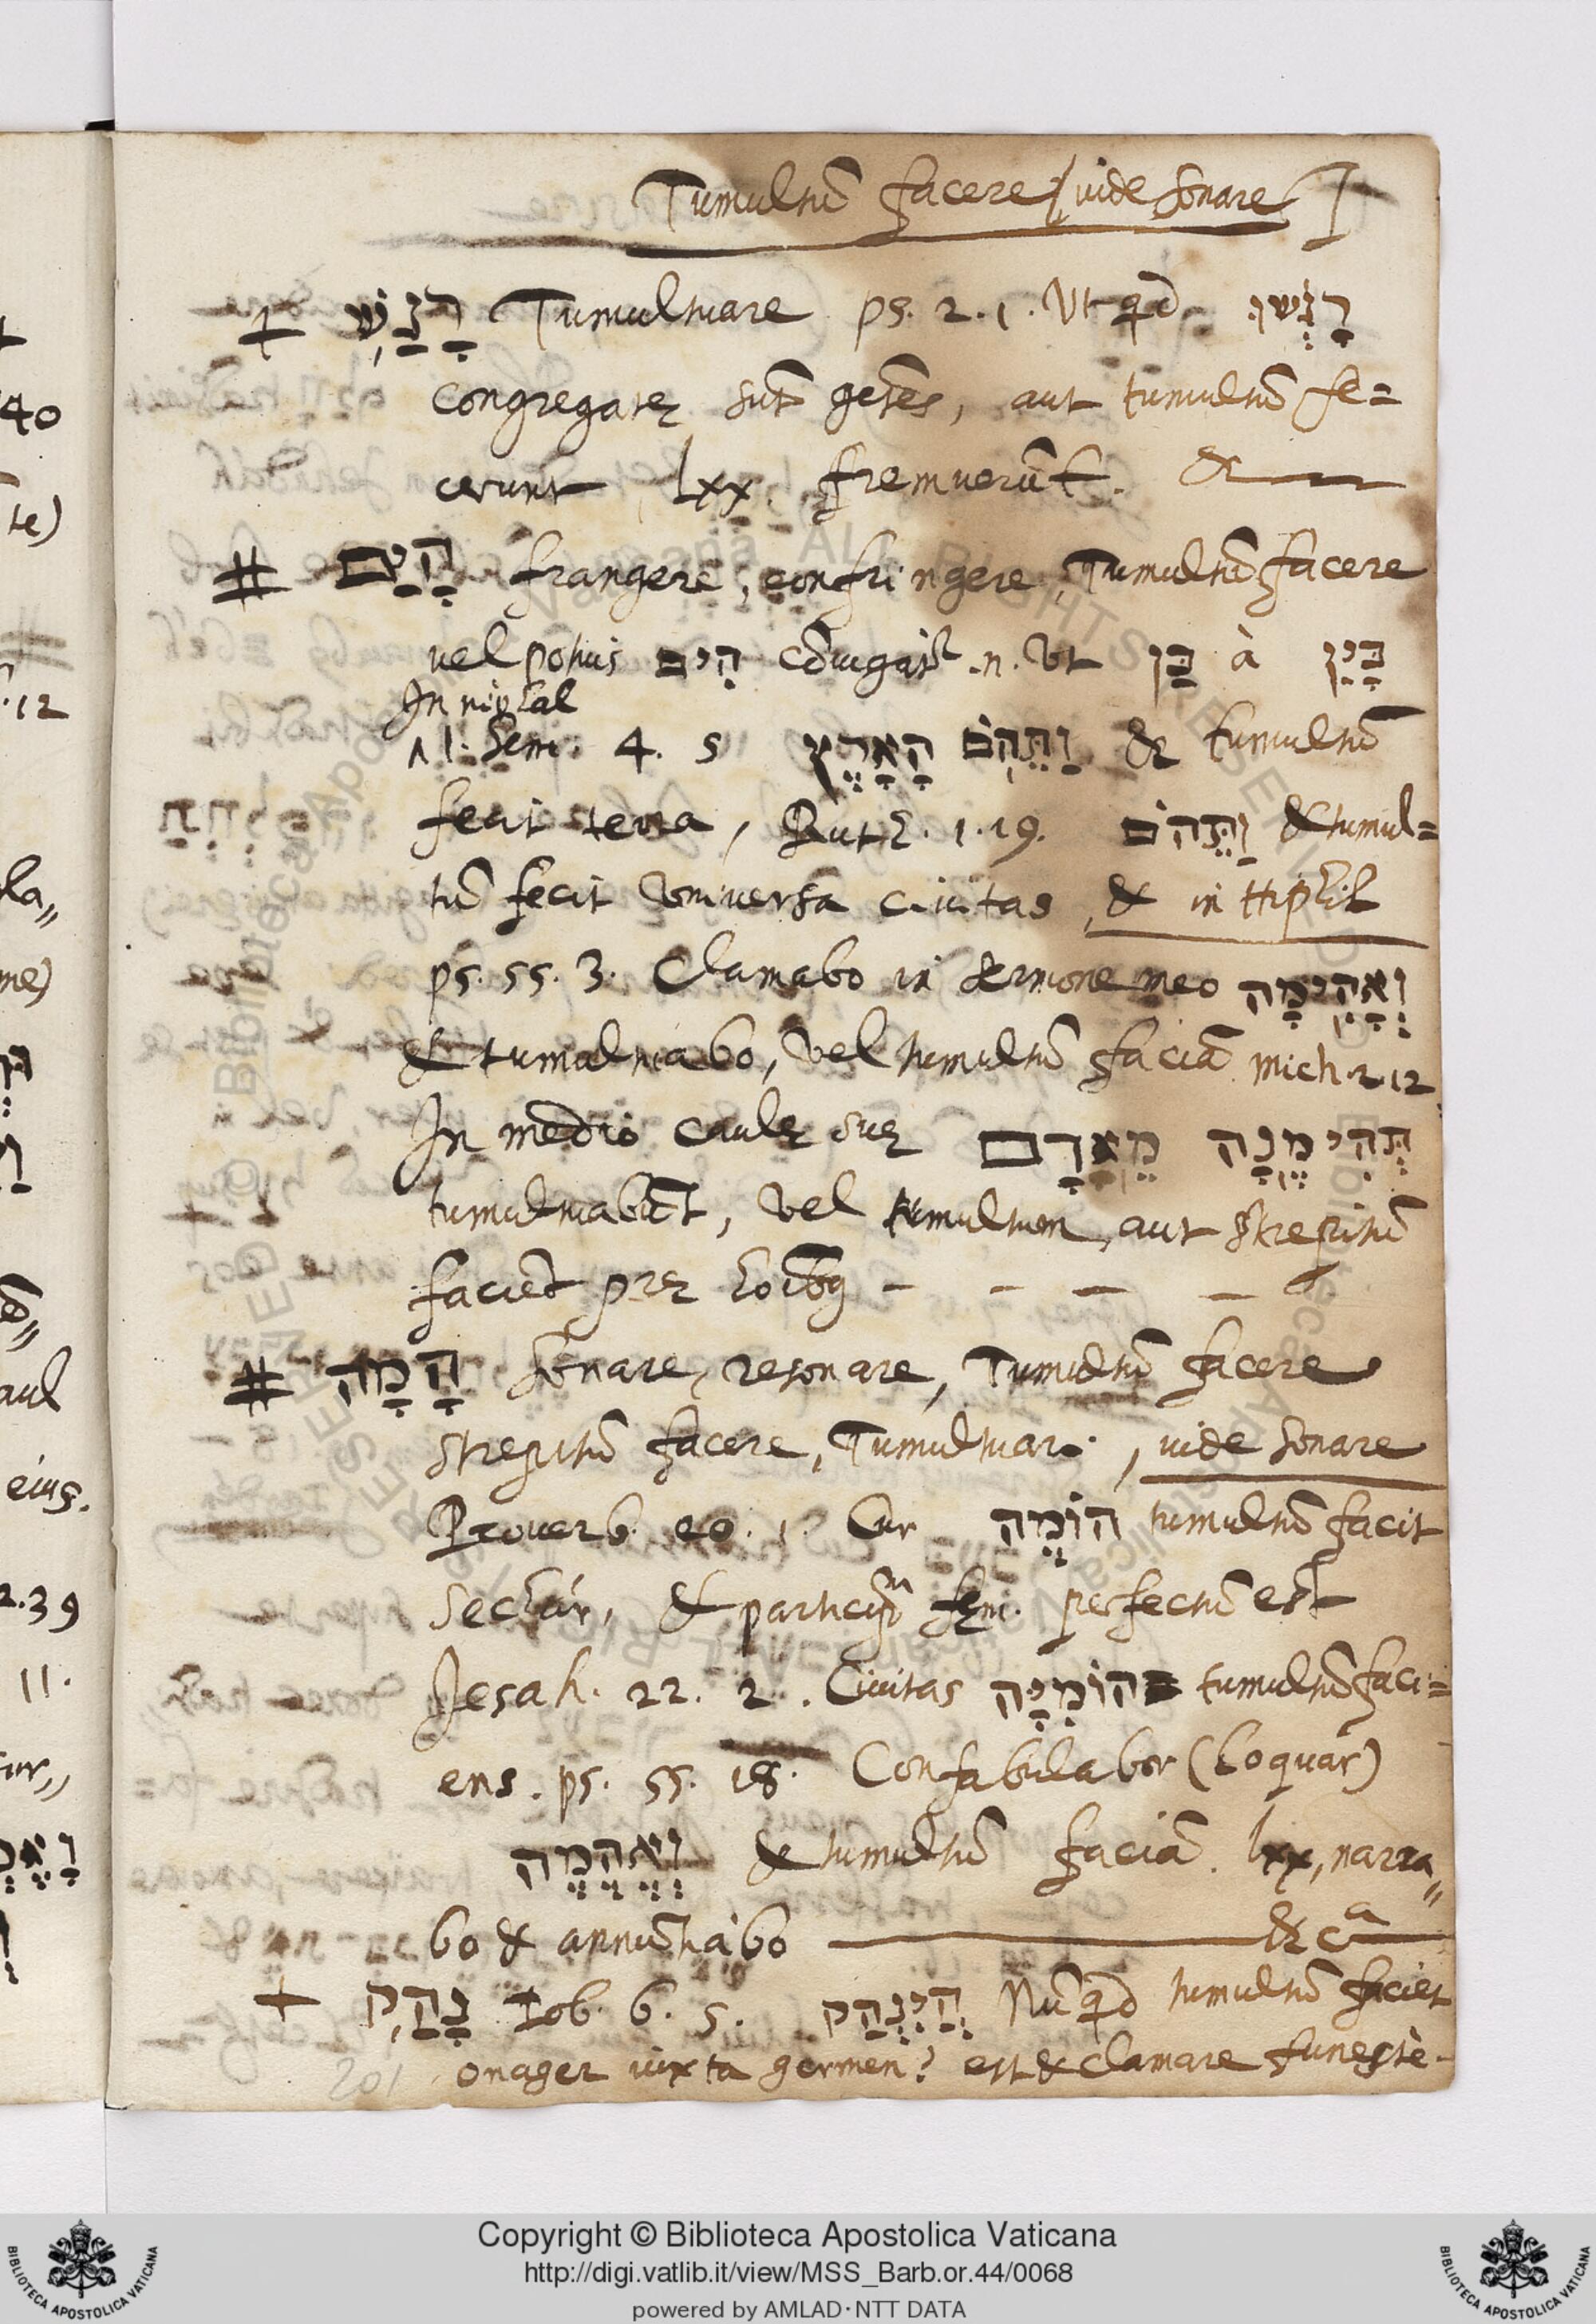 Tumultū facere (vide sonare)
+ רָגַשׁ Tumultuare ps. 2. 1. Vt qd רָגְשׁוּ
congregatę sūt gētes, aut tumultū fe=
cerunt lxx. fremuerūt. &
# הָיַם frangere, confringere, Tumultū facere
vel potius הִים cōiugat^r .n. Vt בָּן à בִּיֵן
In niphal
^ 1. Sem. 4. 5 וַתֵּהֹם הָאָרֶץ & tumultū
fecit terra, Ruth. 1. 19. וַתֵּהֹם & tumul=
tū fecit Vniversa civitas, & in Hiphil
ps. 55. 3. Clamabo in sermone meo וְאָהִימָה
& tumultuabo, vel tumultū faciā mich. 2. 12
In medio caulę suę תְּהִימֶנָה מֵאָדָם
tumultuabūt, vel tumultum, aut strepitū
faciēt prę hoībg - - - -
# הָמָה sonare, resonare, Tumultū facere
strepitū facere, Tumultuar., vide sonare
Proverb. 20. 1. Cur הוֹמֶה tumultū facit
sechár, & particip^m fęm. perfectū est
Jesah. 22. 2. Civitas הוֹמִיָּה tumultū faci=
ens. ps. 55. 18. Confabulabor (loquár)
וְאֶהֱמֶה & tumultū faciā. lxx, narra„
bo & annūtiabo & c^a
+ נָהַק Iob. 6. 5. הֲיִנְהַק Nūqd tumultū faciet
onager iuxta germen? est & clamare funestè.
201
40
te)
.12
la„
me)
aul
eius.
2.39
11.
Copyright © Biblioteca Apostolica Vaticana
http://digi.vatlib.it/view/MSS_Barb.or.44/0068
powered by AMLAD·NTT DATA
BIBLIOTECA APOSTOLICA VATICANA
BIBLIOTECA APOSTOLICA VATICANA